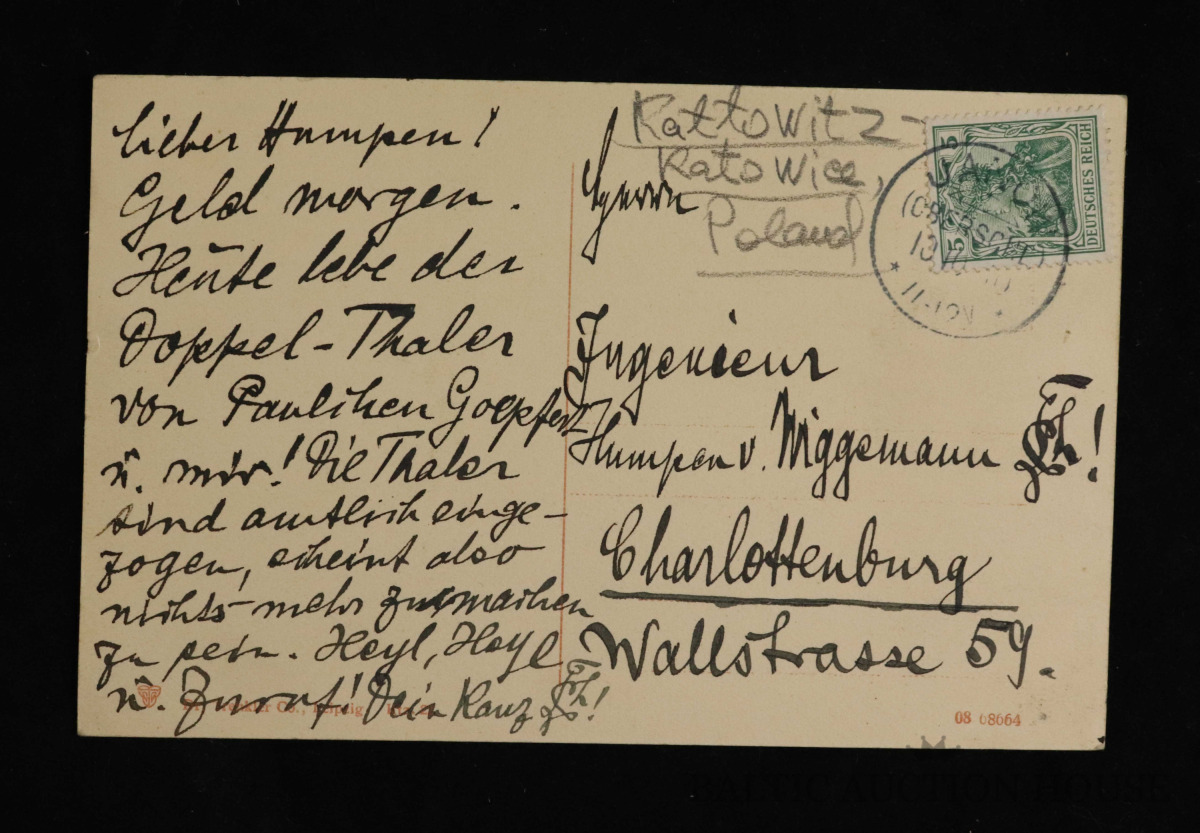 lieber Humpen!
Geld morgen.
Heute lebe der
Doppel-Thaler
von Paulchen Goepfert
u. mir! Die Thaler
sind amtlich einge-
zogen, scheint also
nichts mehr zu machen
zu sein. Heyl, Heyl
u. Zuruf! Dein Kanz
Kattowitz-
Katowice,
Poland
Herrn
Ingenieur
Humpen v. Wiggemann
Charlottenburg
Wallstrasse 59.
5 DEUTSCHES REICH 5
(OBERSCHL.)
08 08664
BALTIC AUCTION HOUSE